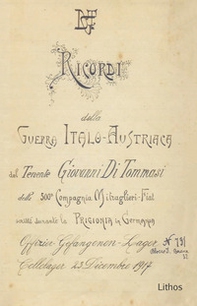 RICORDI
della
GUERRA ITALO-AUSTRIACA
del Tenente Giovanni Di Tommasi
della 500ª Compagnia Mitraglieri-Fiat
scritti durante la PRIGIONIA in GERMANIA
Offizier Gefangenen-Lager
Cellelager 23 Dicembre 1917
Lithos